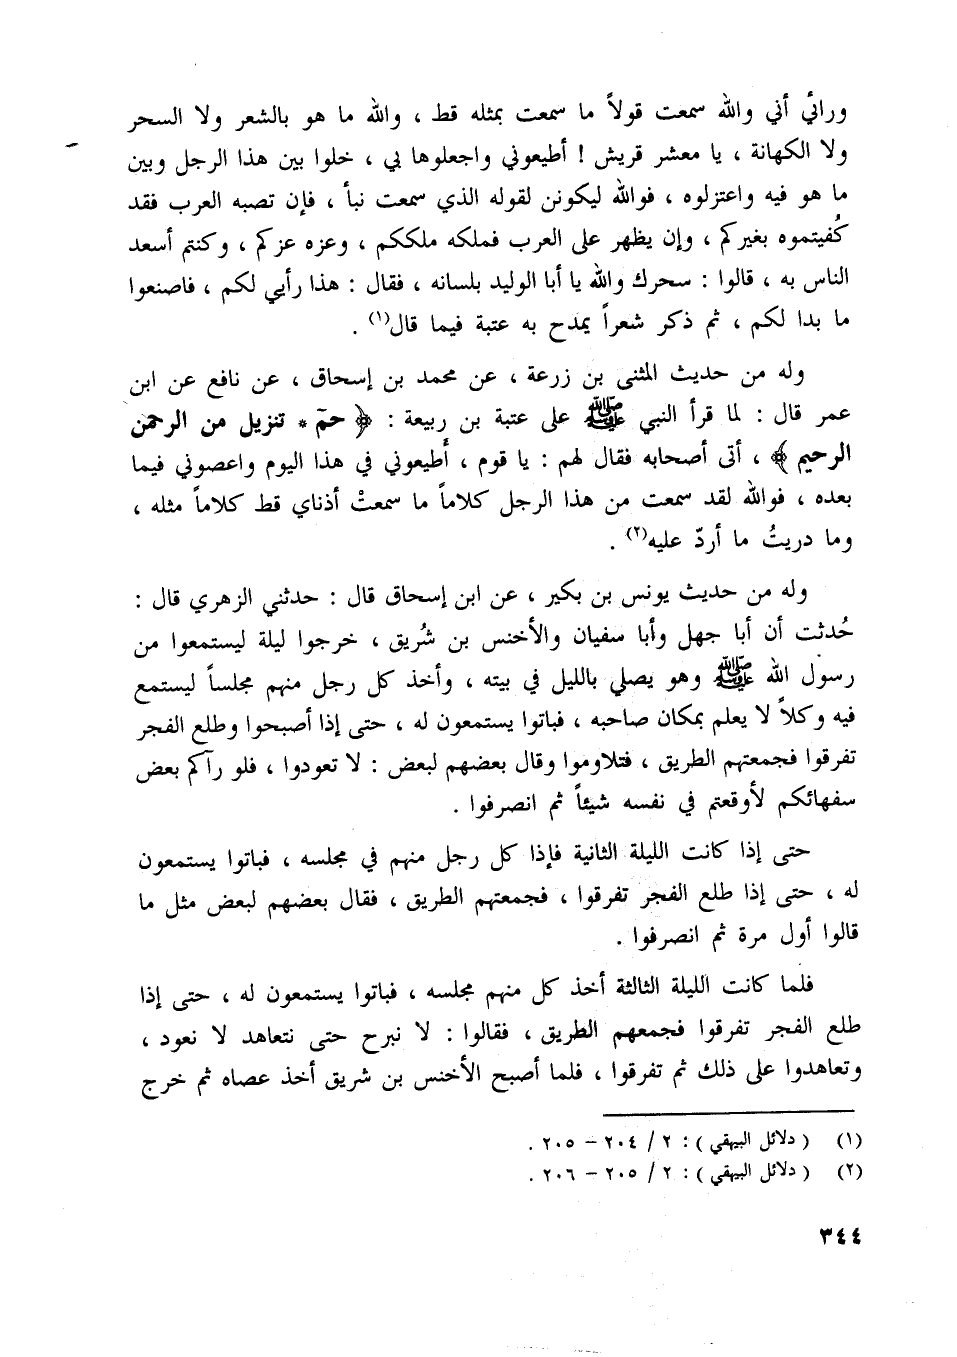 ورائي أني والله سمعت قولاً ما سمعت بمثله قط ، والله ما هو بالشعر ولا السحر
ولا الكهانة ، يا معشر قريش ! أطيعوني واجعلوها بي ، خلوا بين هذا الرجل وبين
ما هو فيه واعتزلوه ، فوالله ليكونن لقوله الذي سمعت نبأ ، فإن تصبه العرب فقد
كُفيتموه بغيركم ، وإن يظهر على العرب فملكه ملككم ، وعزه عزكم ، وكنتم أسعد
الناس به ، قالوا : سحرك والله يا أبا الوليد بلسانه ، فقال : هذا رأيي لكم ، فاصنعوا
ما بدا لكم ، ثم ذكر شعراً يمدح به عتبة فيما قال(١) .
وله من حديث المثنى بن زرعة ، عن محمد بن إسحاق ، عن نافع عن ابن
عمر قال : لما قرأ النبي ﷺ على عتبة بن ربيعة : ﴿ حمّ * تنزيل من الرحمن
الرحيم ﴾ ، أتى أصحابه فقال لهم : يا قوم ، أَطيعوني في هذا اليوم واعصوني فيما
بعده ، فوالله لقد سمعت من هذا الرجل كلاماً ما سمعتْ أذناي قط كلاماً مثله ،
وما دريتُ ما أردّ عليه(٢) .
وله من حديث يونس بن بكير ، عن ابن إسحاق قال : حدثني الزهري قال :
حُدثت أن أبا جهل وأبا سفيان والأخنس بن شُريق ، خرجوا ليلة ليستمعوا من
رسول الله ﷺ وهو يصلي بالليل في بيته ، وأخذ كل رجل منهم مجلساً ليستمع
فيه وكلاً لا يعلم بمكان صاحبه ، فباتوا يستمعون له ، حتى إذا أصبحوا وطلع الفجر
تفرقوا فجمعتهم الطريق ، فتلاوموا وقال بعضهم لبعض : لا تعودوا ، فلو رآكم بعض
سفهائكم لأوقعتم في نفسه شيئاً ثم انصرفوا .
حتى إذا كانت الليلة الثانية فإذا كل رجل منهم في مجلسه ، فباتوا يستمعون
له ، حتى إذا طلع الفجر تفرقوا ، فجمعتهم الطريق ، فقال بعضهم لبعض مثل ما
قالوا أول مرة ثم انصرفوا .
فلما كانت الليلة الثالثة أخذ كل منهم مجلسه ، فباتوا يستمعون له ، حتى إذا
طلع الفجر تفرقوا فجمعهم الطريق ، فقالوا : لا نبرح حتى نتعاهد لا نعود ،
وتعاهدوا على ذلك ثم تفرقوا ، فلما أصبح الأخنس بن شريق أخذ عصاه ثم خرج
(١) ( دلائل البيهقي ) : ٢ / ٢٠٤ – ٢٠٥ .
(٢) ( دلائل البيهقي ) : ٢ / ٢٠٥ – ٢٠٦ .
٣٤٤